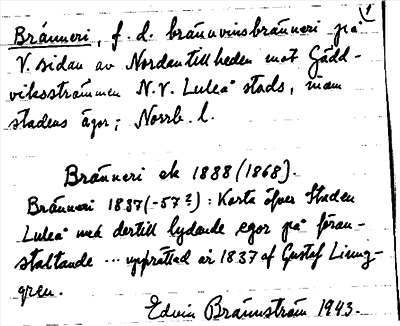 1
Bränneri, f.d. brännvinsbränneri på
V. sidan av Nordantillheden mot Gädd-
viksströmmen N.V. Luleå stads, inom
stadens ägor; Norrb. l.
Bränneri ek 1888 (1868).
Bränneri 1837 (-57?): Karta öfver Staden
Luleå med dertill lydande egor på föran-
staltande ... upprättad år 1837 af Gustaf Ljung-
gren.
Edvin Brännström 1943.